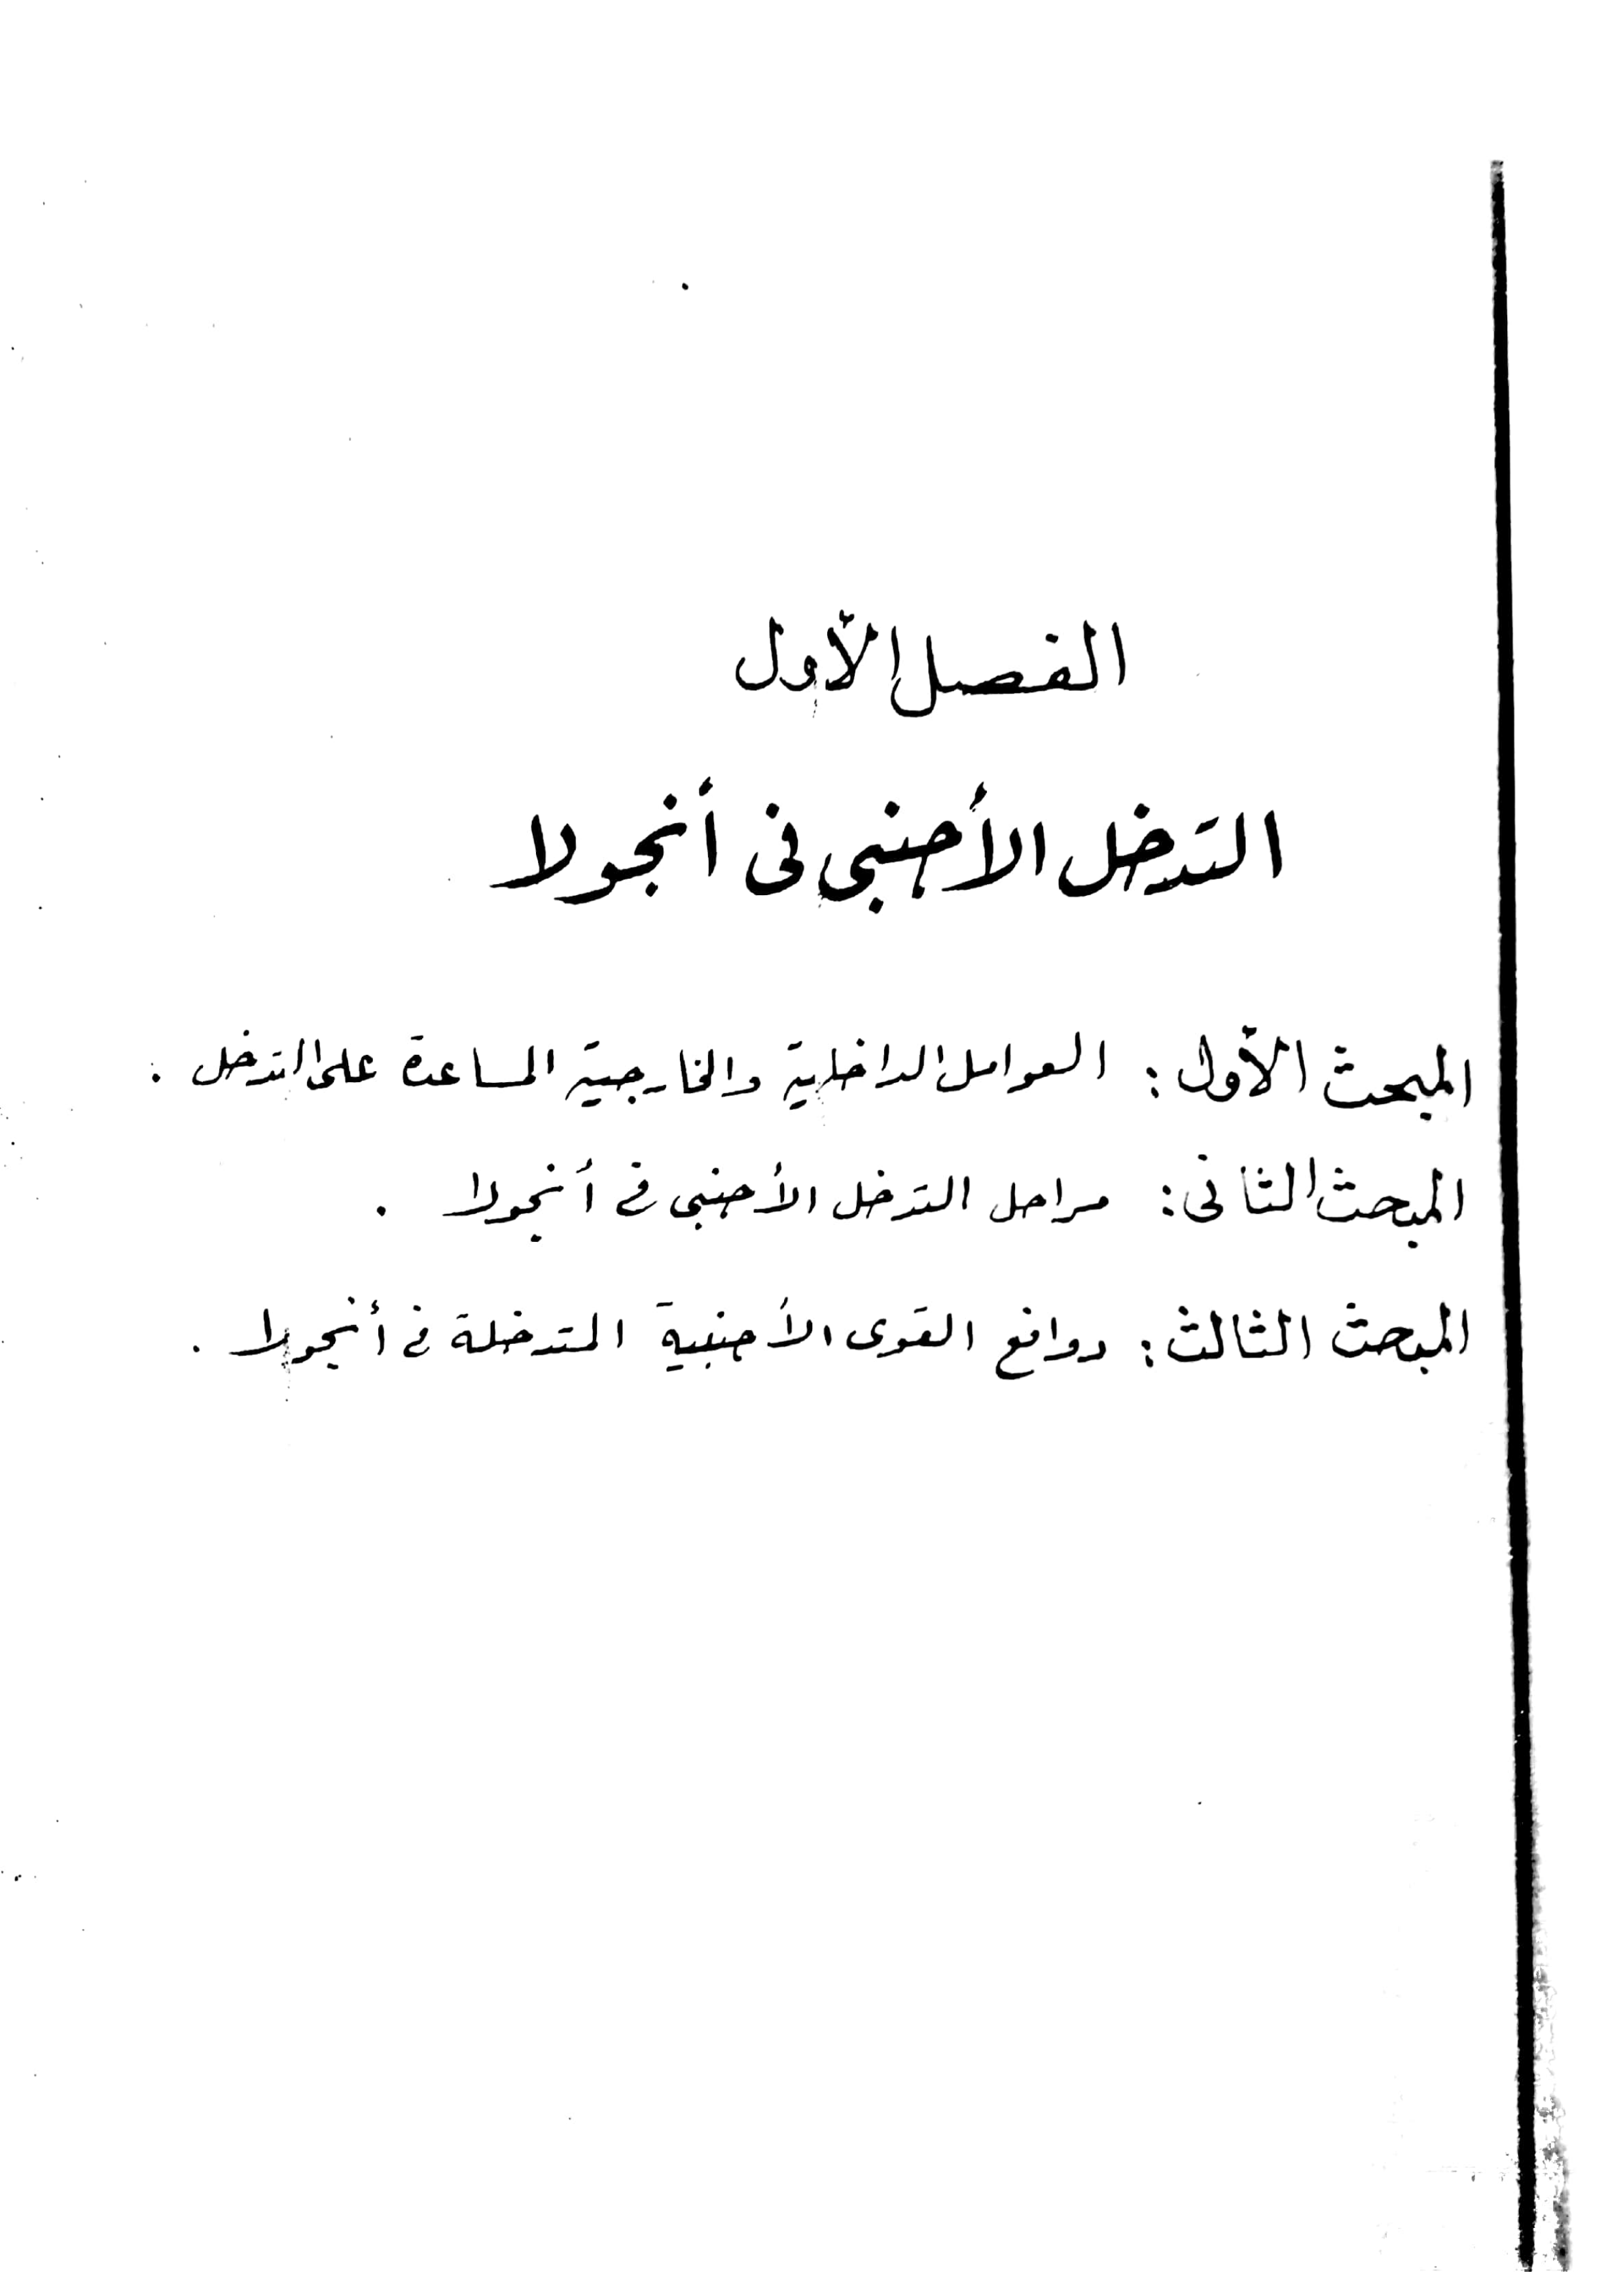 الفصل الأول
التدخل الأجنبى فى أنجولا
المبحث الأول: العوامل الداخلية والخارجية المساعدة على التدخل .
المبحث الثانى: مراحل التدخل الأجنبى فى أنجولا .
المبحث الثالث: دوافع القوى الأجنبية المتدخلة فى أنجولا .